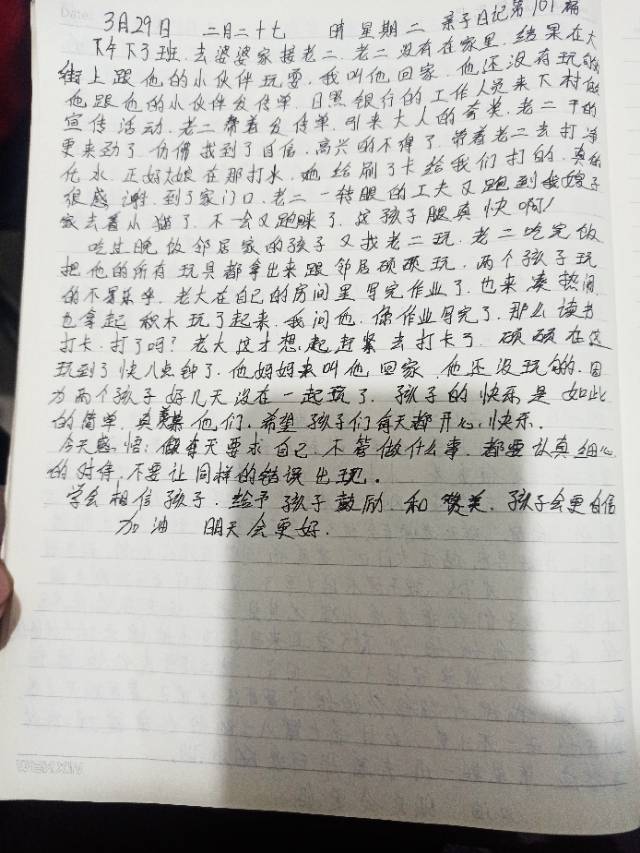 Date.
3月29日 二月二十七 晴 星期二 亲子日记第101篇
下午下了班.去婆婆家接老二.老二没有在家里.结果在大
街上跟他的小伙伴玩耍.我叫他回家.他还没有玩
他跟他的小伙伴发传单.日照银行的工作人员来下村做
宣传活动.老二帮着发传单.引来大人的夸奖.老二干的
更来劲了.仿佛找到了自信.高兴的不得了.带着老二去打净
化水.正好大娘在那打水.她给刷了卡给我们打的.真的
很感谢.到了家门口.老二一转眼的工夫又跑到我嫂子
家去看小猫了.不一会又跑来了.这孩子腿真快啊!
吃过晚饭邻居家的孩子又找老二玩.老二吃完饭
把他的所有玩具都拿出来跟邻居硕硕玩.两个孩子玩
的不易乐乎.老大在自己的房间里写完作业了.也来凑热闹
也拿起积木玩了起来.我问他.你作业写完了.那么读书
打卡.打了吗?老大这才想起赶紧去打卡了.硕硕在这
玩到了快八点钟了.他妈妈来叫他回家.他还没玩的.因
为两个孩子好几天没在一起玩了.孩子的快乐是如此
的简单.真羡慕他们.希望孩子们每天都开心.快乐.
今天感悟:做每天要求自己.不管做什么事.都要认真细心
的对待,不要让同样的错误出现.
学会相信孩子.给予孩子鼓励.和赞美.孩子会更自信
加油 明天会更好.